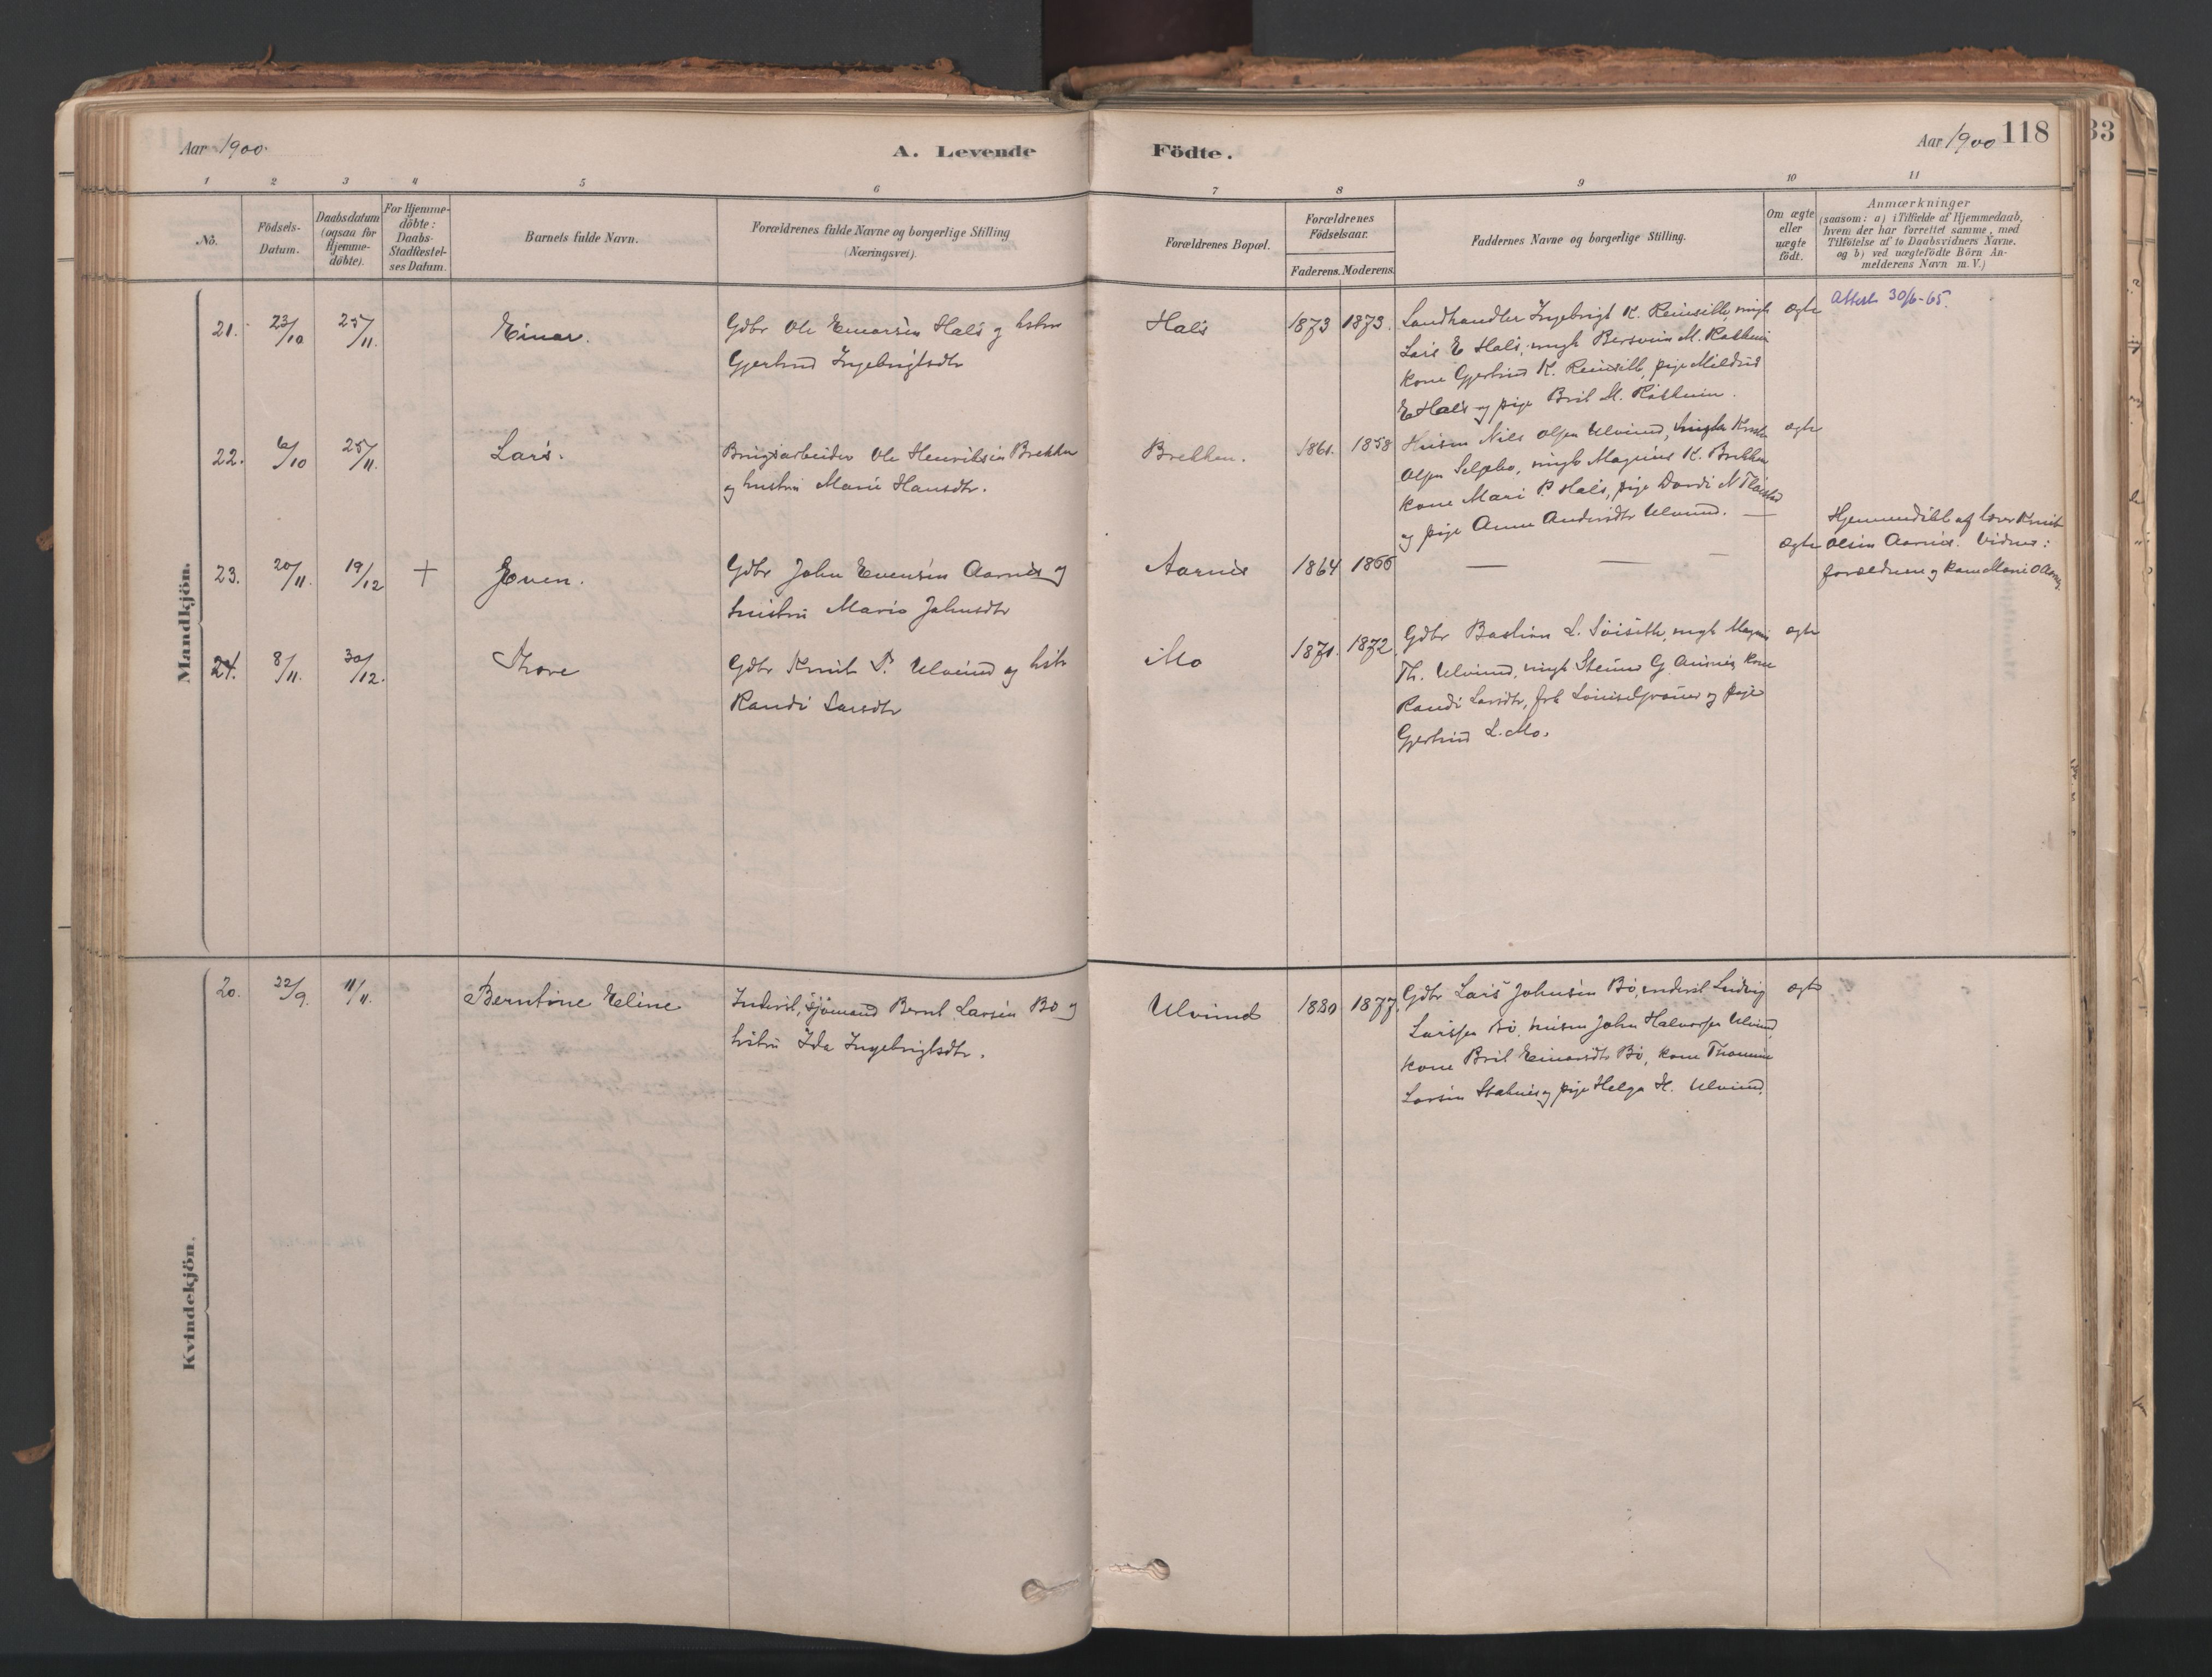 Aar 1900.
A. Levende Födte.
Aar 1900 118
33
1 2 3 4 5 6 7 8 9 10 11
No.
Födsels-
Datum.
Daabsdatum
(ogsaa for
Hjemme-
döbte).
For Hjemme-
döbte:
Daabs-
Stadfæstel-
ses Datum.
Barnets fulde Navn.
Forældrenes fulde Navne og borgerlige Stilling
(Næringsvei).
Forældrenes Bopæl.
Forældrenes
Födselsaar.
Faderens. Moderens.
Faddernes Navne og borgerlige Stilling.
Om ægte
eller
uægte
födt.
Anmærkninger
(saasom: a) i Tilfælde af Hjemmedaab,
hvem der har forrettet samme, med
Tilföielse af to Daabsvidners Navne.
og b) ved uægtefödte Börn An-
melderens Navn m. V.)
Mandkjön.
21. 23/10 25/11. Einar.
Gdbr Ole Einarsen Hals og hstru
Gjertrud Ingebrigtsdtr
Hals 1873 1873.
Landhandler Ingebrigt K. Reinseth, ungk
Lars E Hals, ungk M.
kone Gjertrud K. Reinseth, pige Mildrid
E Hals og pige Brit M.
ægte
Attest 30/6-65.
22. 6/10 25/11. Lars.
Brugsarbeider Ole Henriksen Brekken
og hustru Marie Hansdtr.
Brekken. 1861. 1858
Husm Nils Olsen Ulvund, ungk
Olsen ungk Magnus K. Brekken
kone Mari P. Hals, pige Dordi N
og pige Anne Andersdtr Ulvund. —
ægte
23. 20/11. 19/12 + Even.
Gdbr John Evensen Aarnes og
hustru Marie Johnsdtr
Aarnes 1864 1866
— —
ægte
Hjemmedöbt af lærer Knut
Olsen Aarnes. Vidner:
forældrene og kone Marie O Aarnes
24. 8/11. 30/12. Thore
Gdbr Knut T. Ulvund og hstr
Randi Larsdtr
Mo 1871. 1872.
Gdbr Bastian L. ungk Magnus
Th. Ulvund, ungk G. kone
Randi Larsdtr, frk og pige
Gjertrud L. Mo.
ægte
Kvindekjön.
20. 22/9. 11/11. Berntine Eline
Inderst, sjömand Bernt Larsen Bö og
hstru Ida Ingebrigtsdtr.
Ulvund 1880 1877.
Gdbr Lars Johnsen Bö, inderst Ludvig
Larssen Bö, husm John Halvorsen Ulvund,
kone Brit Einarsdtr Bö, kone
Larsen og pige Helga H. Ulvund.
ægte